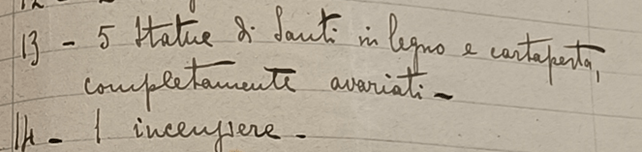 13 - 5 Statue di Santi in legno e cartapesta,
completamente avariati -
14 - 1 incensiere -